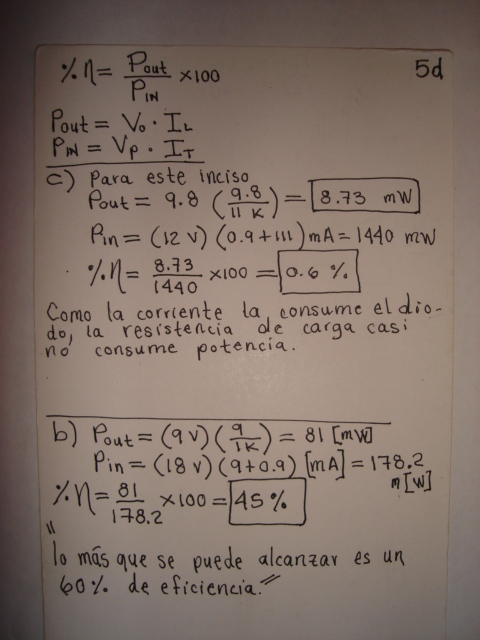 %η = Pout/PIN ×100
5d
Pout = Vo · IL
PIN = Vp · IT
c) Para este inciso
Pout = 9.8 (9.8/11 K) = 8.73 mW
Pin = (12 V) (0.9+111) mA = 1440 mW
%η = 8.73/1440 ×100 = 0.6 %
Como la corriente la consume el dio-
do, la resistencia de carga casi
no consume potencia.
b) Pout = (9 V) (9/1K) = 81 [mW]
Pin = (18 V) (9+0.9) [mA] = 178.2
m[W]
%η = 81/178.2 ×100 = 45 %
"
lo más que se puede alcanzar es un
60% de eficiencia."